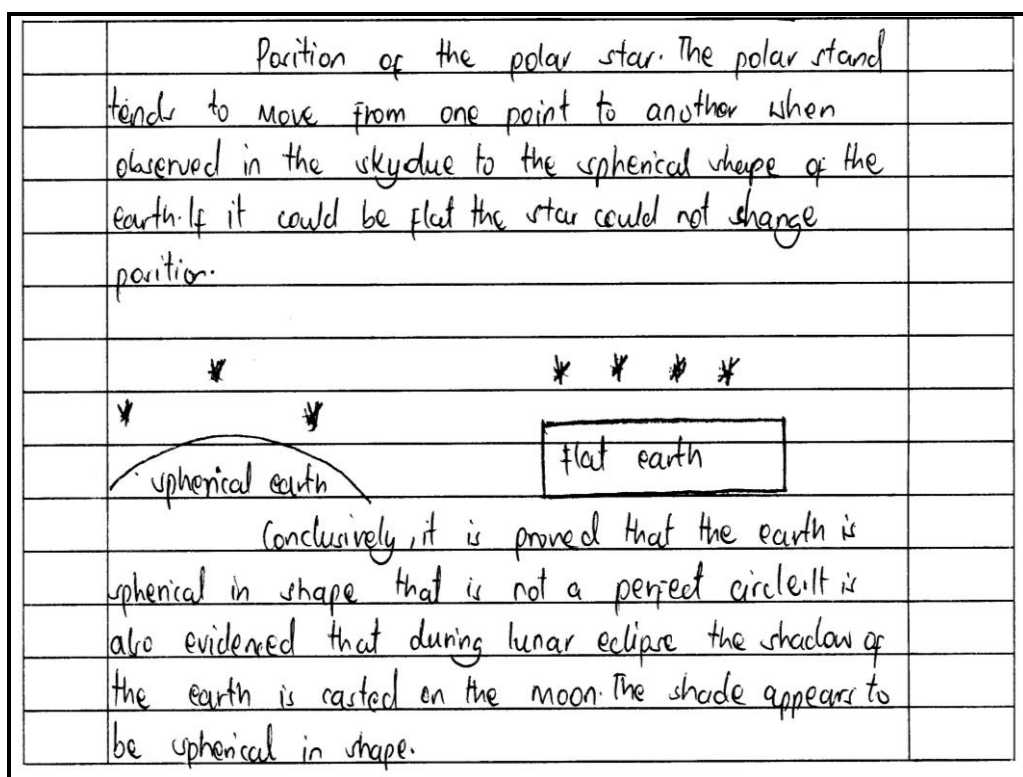 Position of the polar star. The polar stand
tends to move from one point to another when
observed in the skydue to the spherical shape of the
earth. If it could be flat the star could not shange
position.
flat earth
spherical earth
Conclusively, it is proved that the earth is
spherical in shape that is not a perfect circle. It is
also evidenced that during lunar eclipse the shadow of
the earth is casted on the moon. The shade appears to
be spherical in shape.